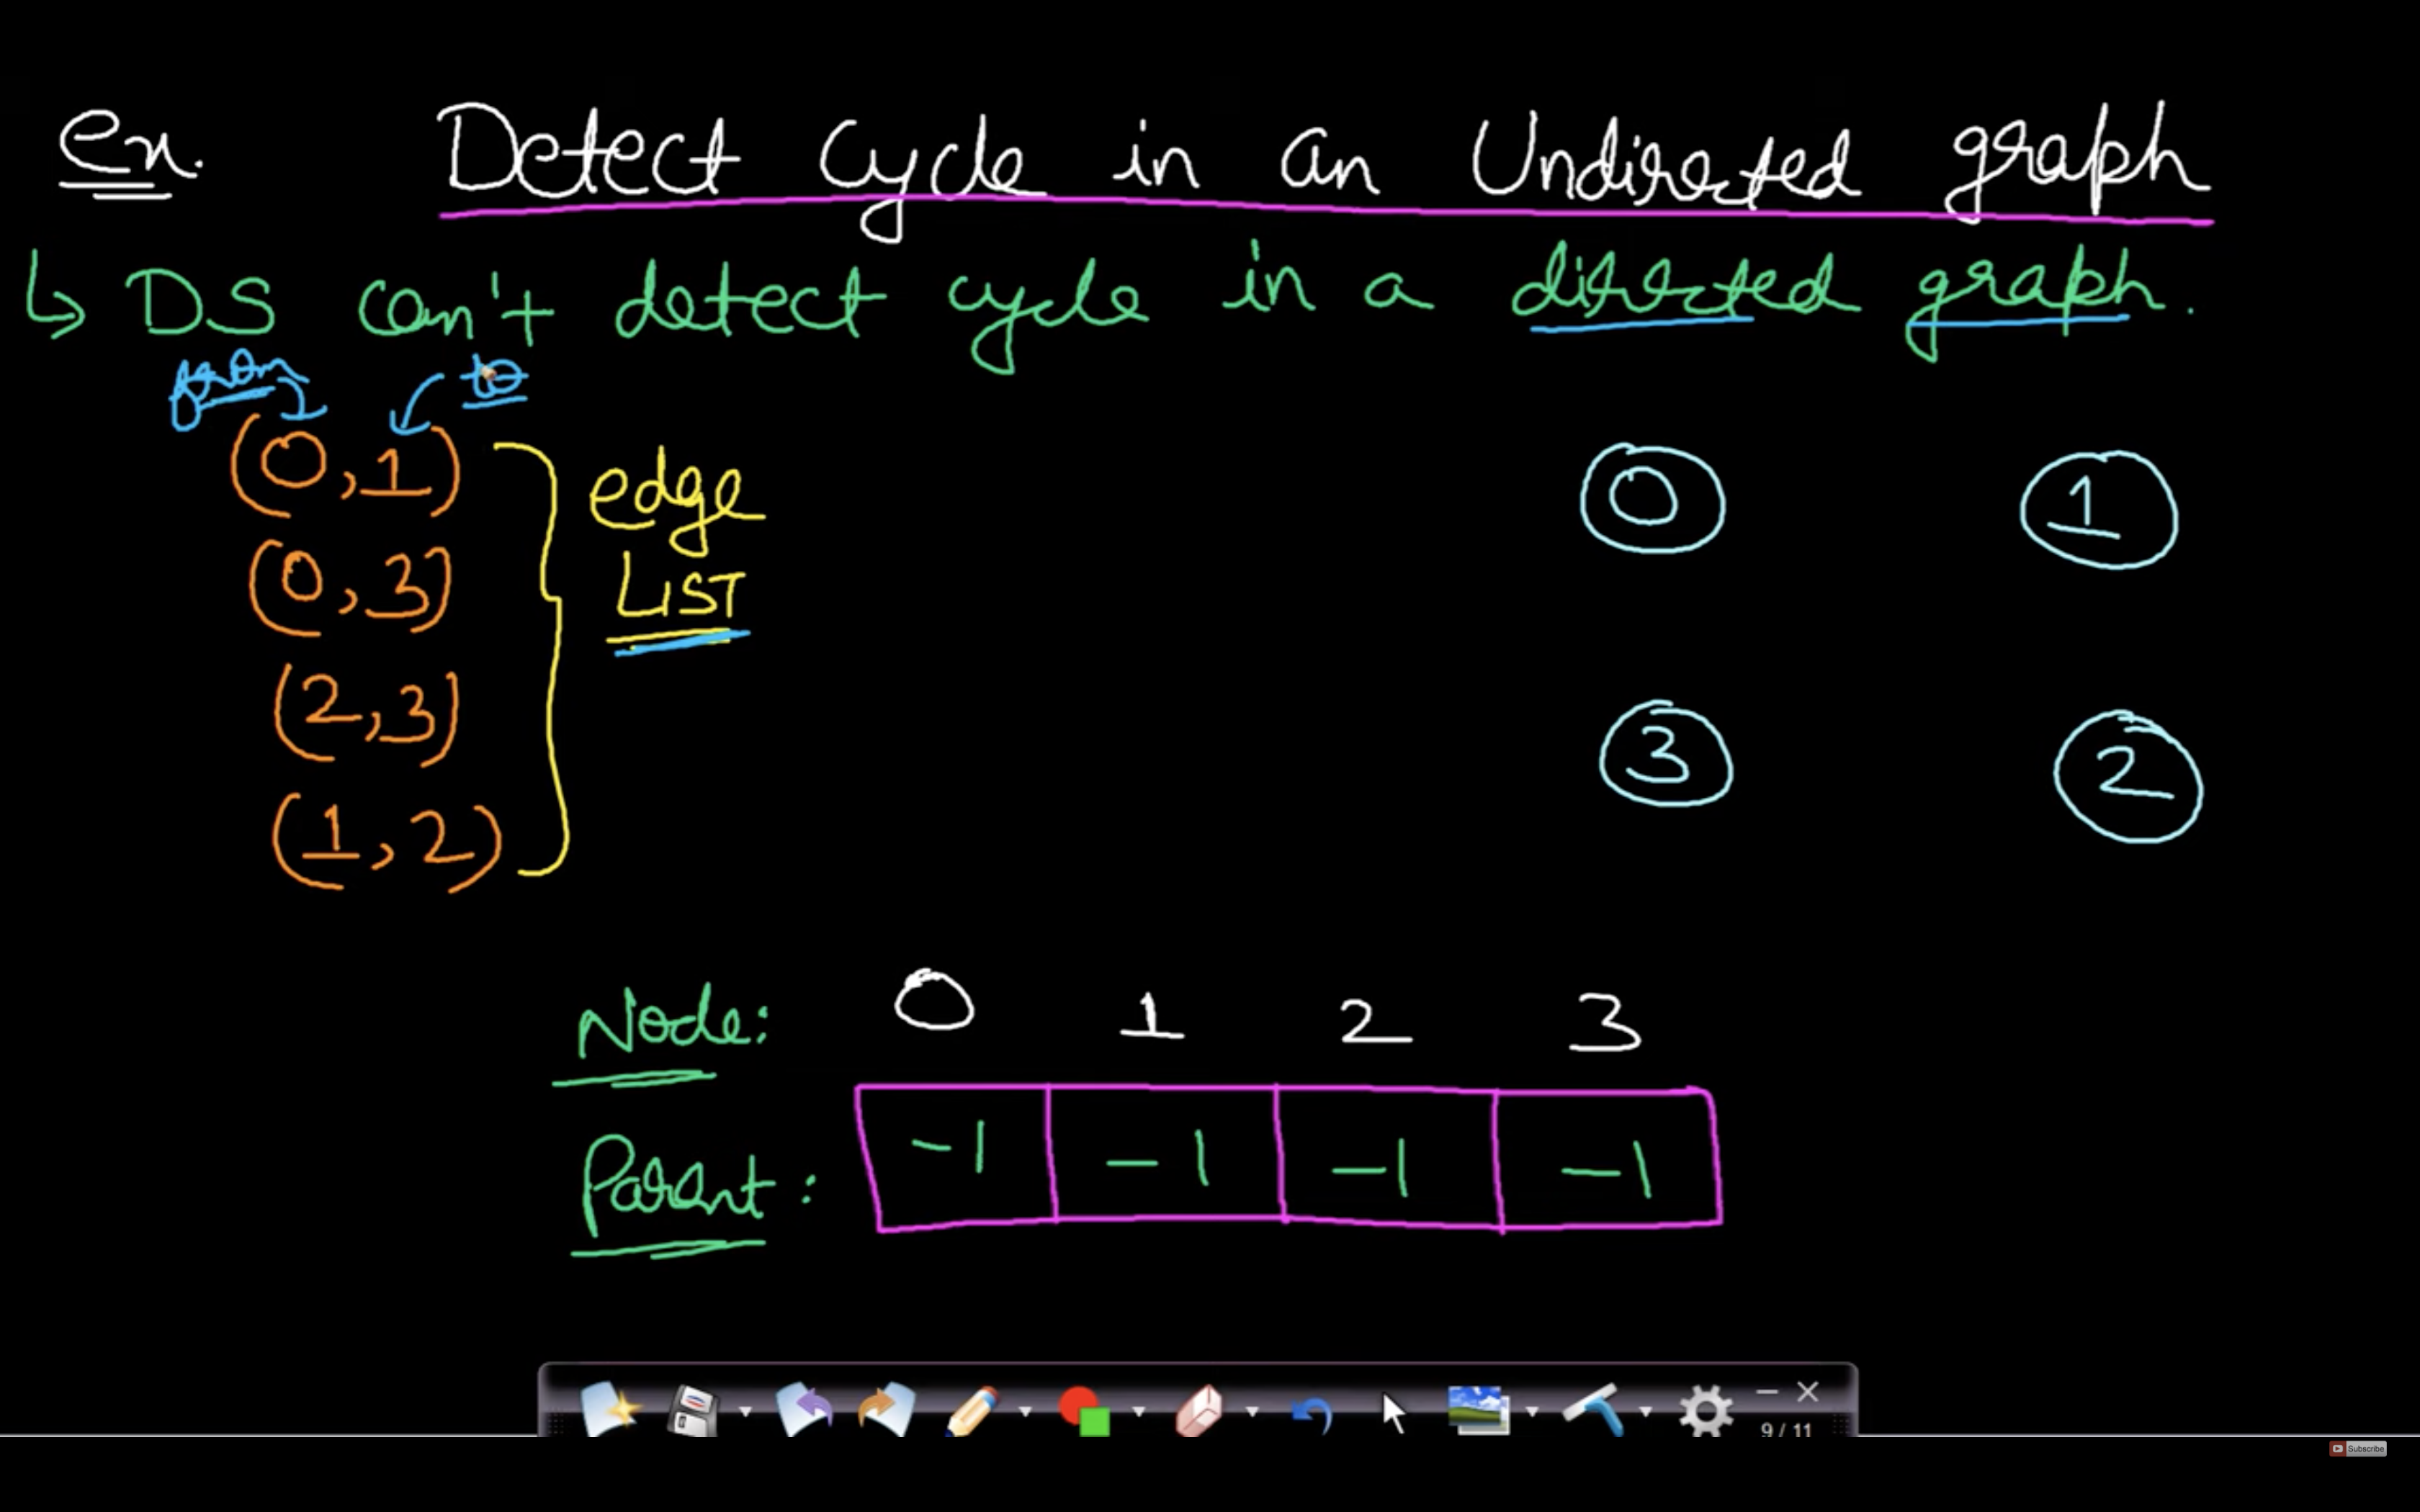 ex. Detect Cycle in an Undirected graph
↳ DS can't detect cycle in a directed graph.
from to
(0,1)
(0,3)
(2,3)
(1,2)
edge
LIST
0 1
3 2
Node: 0 1 2 3
Parent: -1 -1 -1 -1
9 / 11
Subscribe